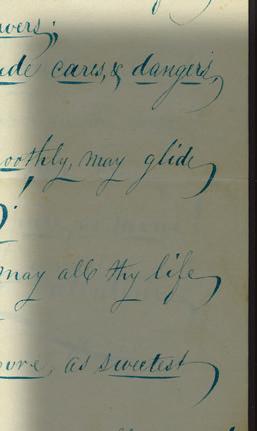 ude cares, & dangers,
oothly, may glide
may all thy life
as sweetest